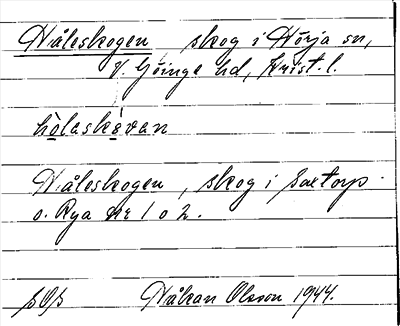 Håleskogen, skog i Hörja sn,
V. Göinge hd, Krist. l.
hòlaskóvan
Håleskogen, skog i Saxtorp
o. Rya nr 1 o 2.
Håkan Olsson 1944.